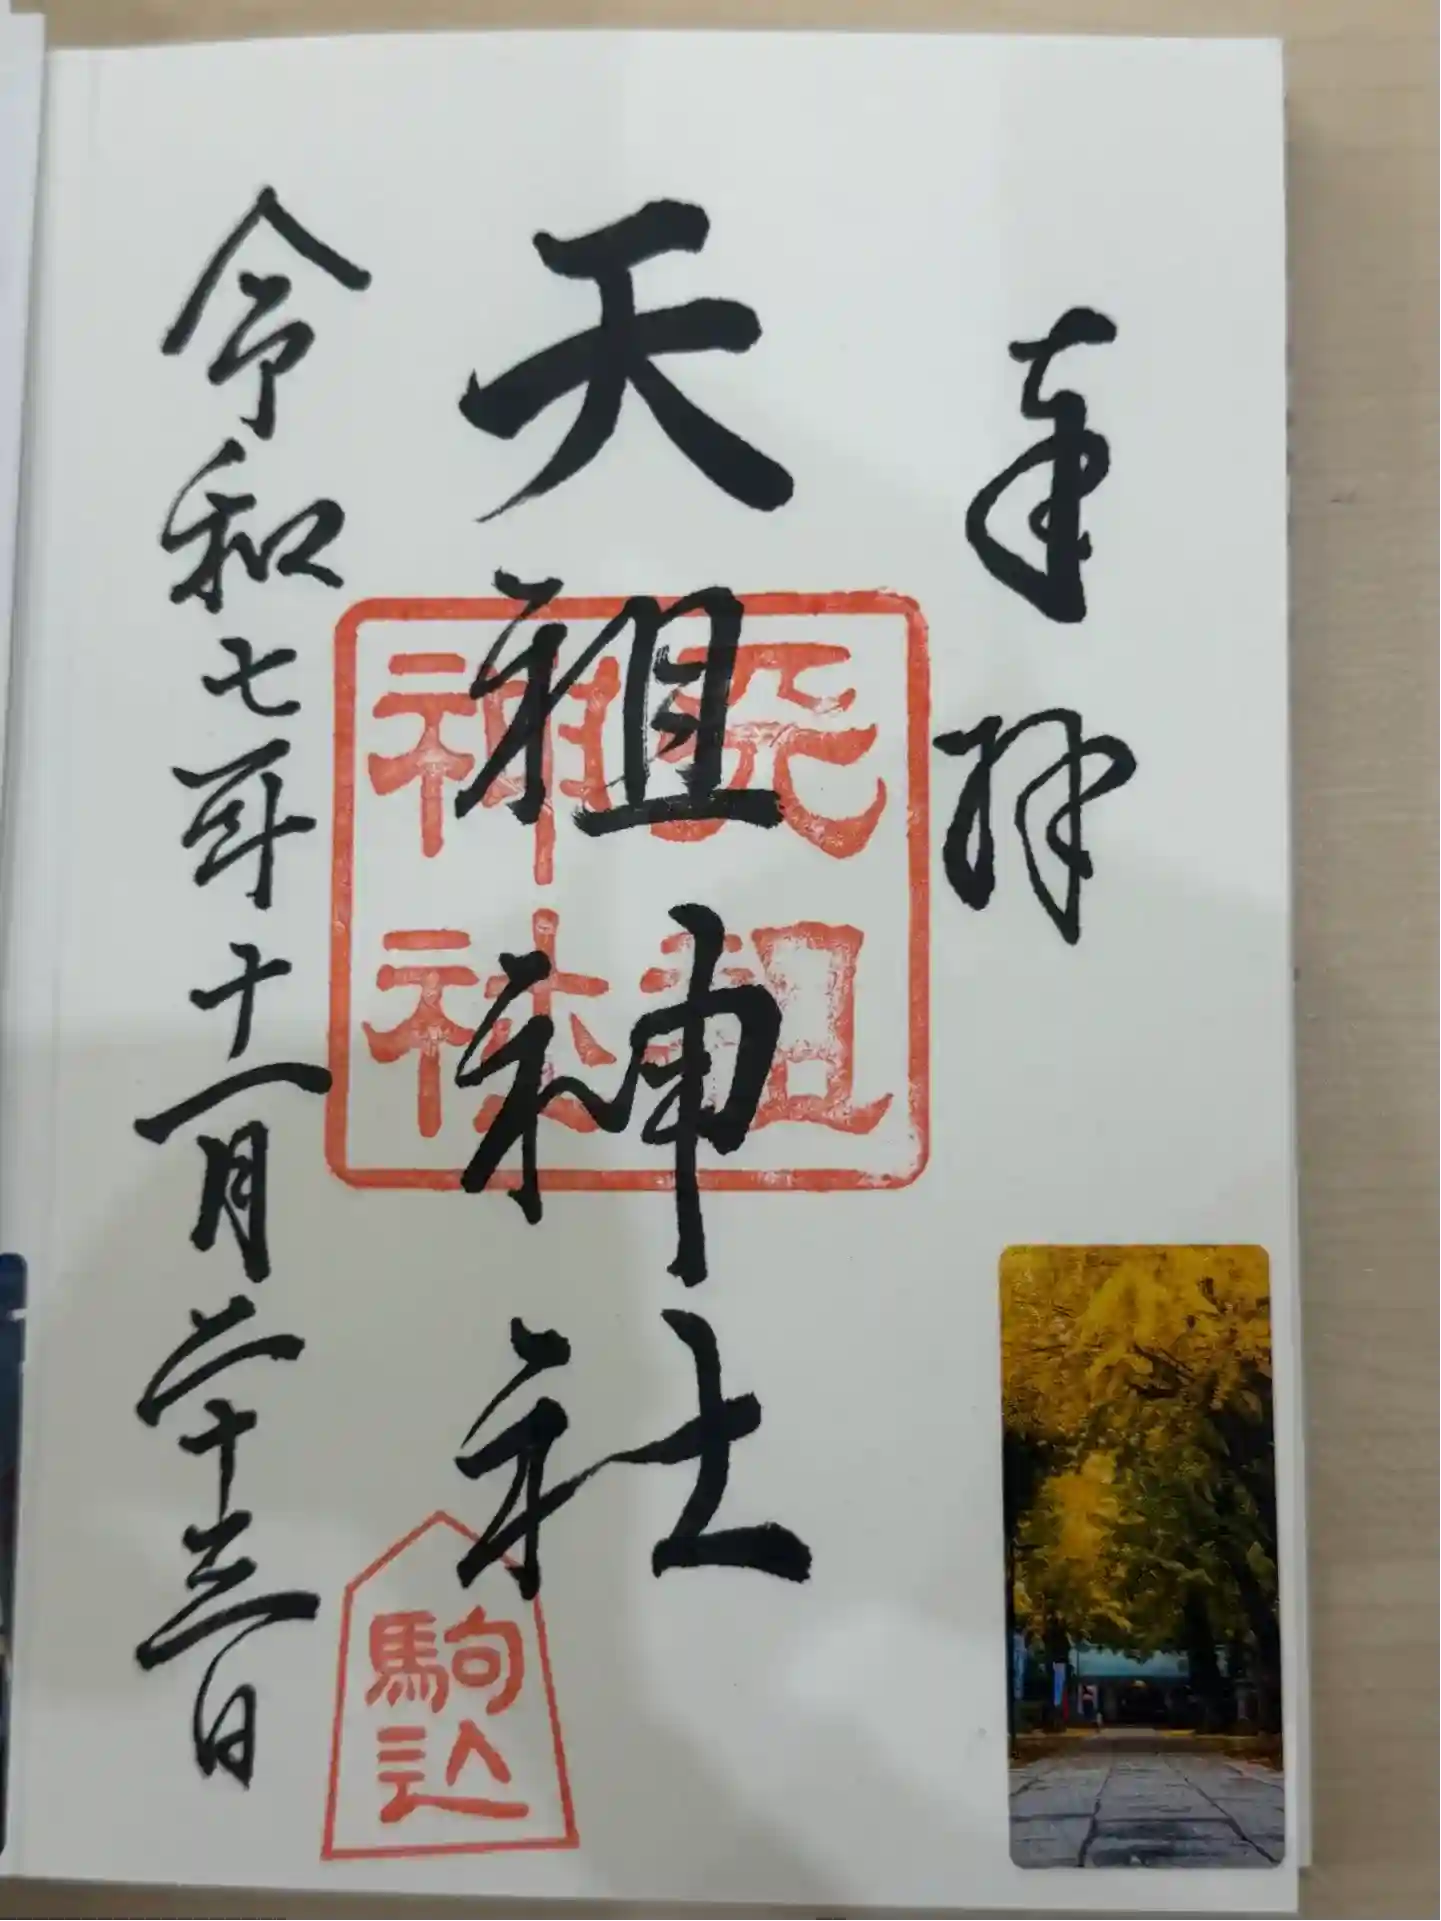 奉拝
天祖神社
天祖
神社
駒込
令和七年十一月二十三日